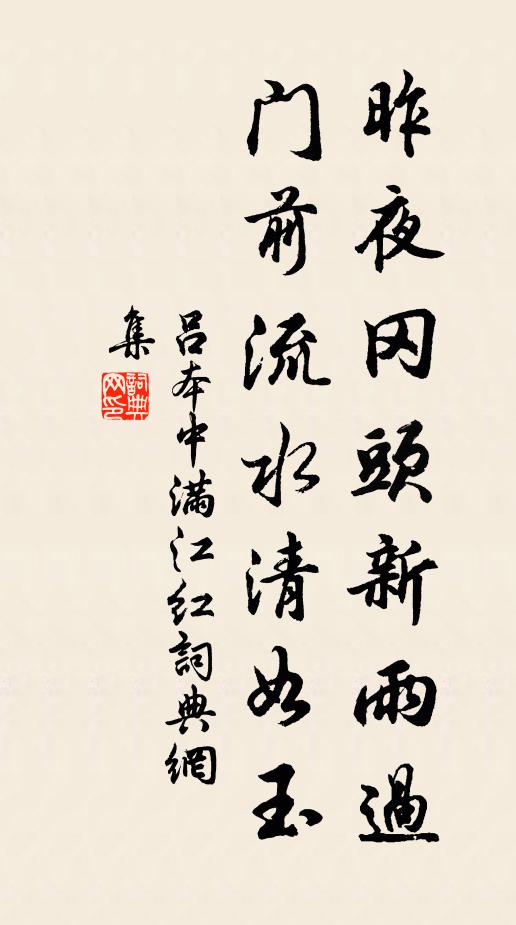 昨夜冈頭新雨過
门前流水清如玉
吕本中满江红詞典網
集
詞典网印